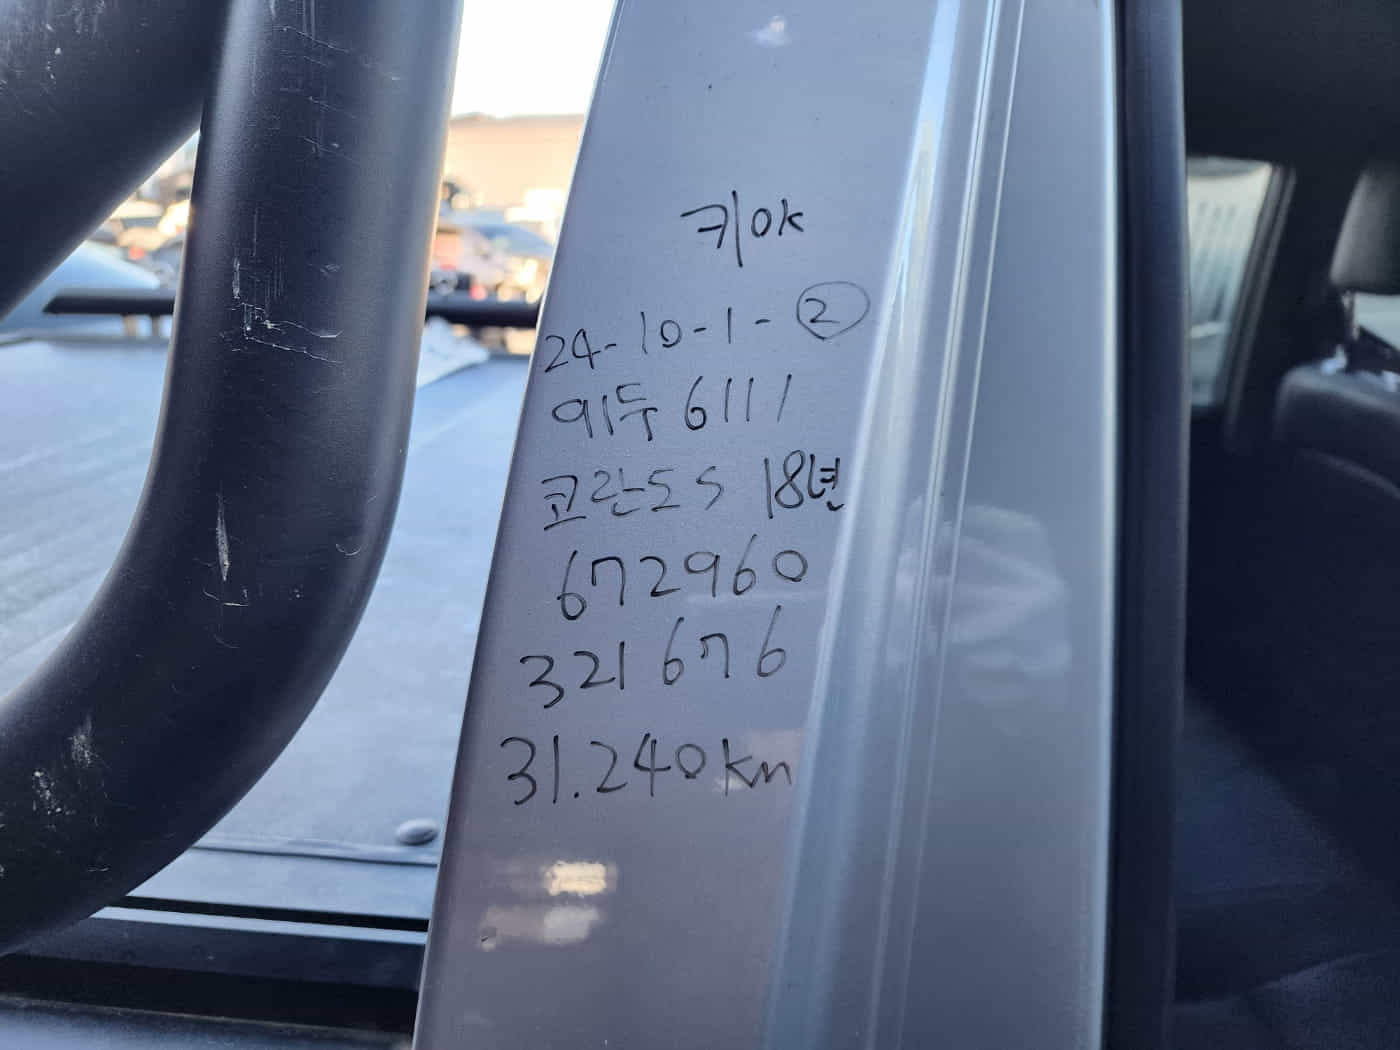 키OK
24-10-1-②
91두 6111
코란도S 18년
672960
321676
31.240km